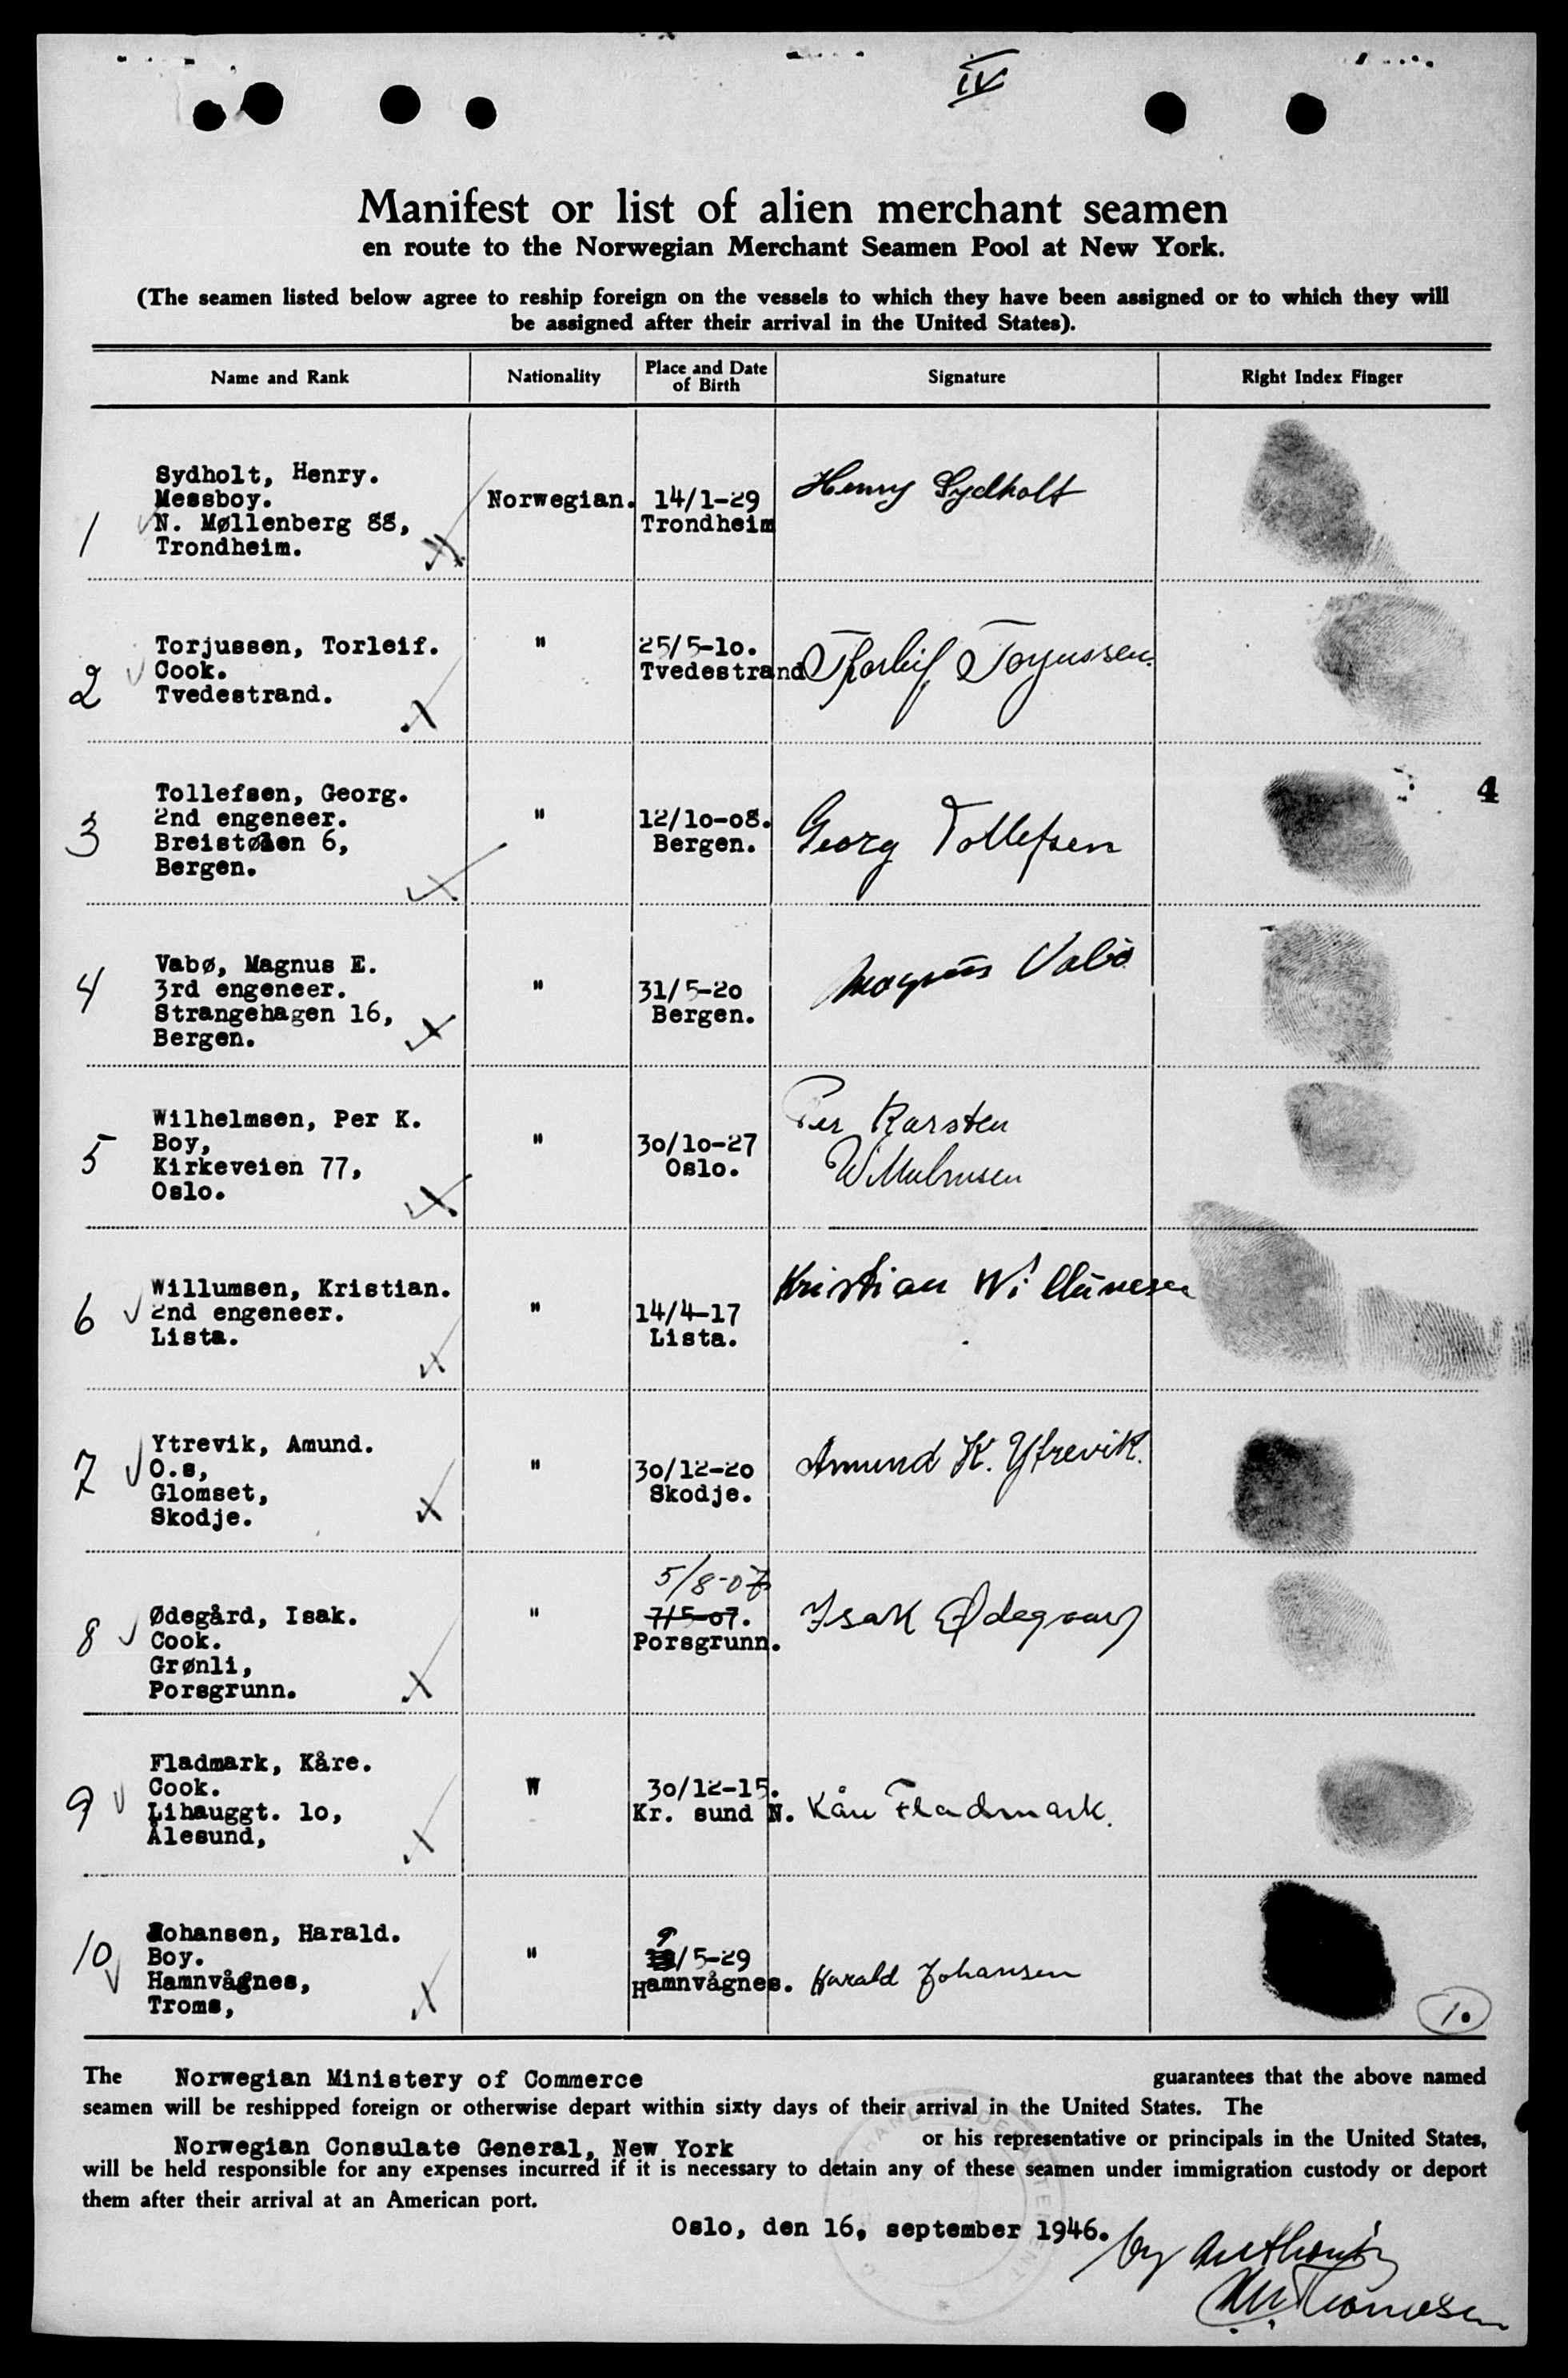 IV
Manifest or list of alien merchant seamen
en route to the Norwegian Merchant Seamen Pool at New York.
(The seamen listed below agree to reship foreign on the vessels to which they have been assigned or to which they will
be assigned after their arrival in the United States).
Name and Rank Nationality Place and Date of Birth Signature Right Index Finger
1
Sydholt, Henry.
Messboy.
N. Møllenberg 88,
Trondheim.
Norwegian.
14/1-29
Trondheim
Henry Sydholt
2
Torjussen, Torleif.
Cook.
Tvedestrand.
"
25/5-10.
Tvedestrand
Thorleif Torjussen.
3
Tollefsen, Georg.
2nd engeneer.
Breistølen 6,
Bergen.
"
12/10-08.
Bergen.
Georg Tollefsen
4
4
Vabø, Magnus E.
3rd engeneer.
Strangehagen 16,
Bergen.
"
31/5-20
Bergen.
Magnus Vabø
5
Wilhelmsen, Per K.
Boy,
Kirkeveien 77,
Oslo.
"
30/10-27
Oslo.
Per Karsten
Wilhelmsen
6
Willumsen, Kristian.
2nd engeneer.
Lista.
"
14/4-17
Lista.
Kristian Willumsen
7
Ytrevik, Amund.
O.s,
Glomset,
Skodje.
"
30/12-20
Skodje.
Amund K. Ytrevik.
8
Ødegård, Isak.
Cook.
Grønli,
Porsgrunn.
"
5/8-07
7/5-07.
Porsgrunn.
Isak Ødegaard
9
Fladmark, Kåre.
Cook.
Lihauggt. 10,
Ålesund,
"
30/12-15.
Kr. sund N.
Kåre Fladmark.
10
Johansen, Harald.
Boy.
Hamnvågnes,
Troms,
"
9/5-29
Hamnvågnes.
Harald Johansen
1.
The Norwegian Ministery of Commerce guarantees that the above named
seamen will be reshipped foreign or otherwise depart within sixty days of their arrival in the United States. The
Norwegian Consulate General, New York or his representative or principals in the United States,
will be held responsible for any expenses incurred if it is necessary to detain any of these seamen under immigration custody or deport
them after their arrival at an American port.
Oslo, den 16, september 1946.
by authority